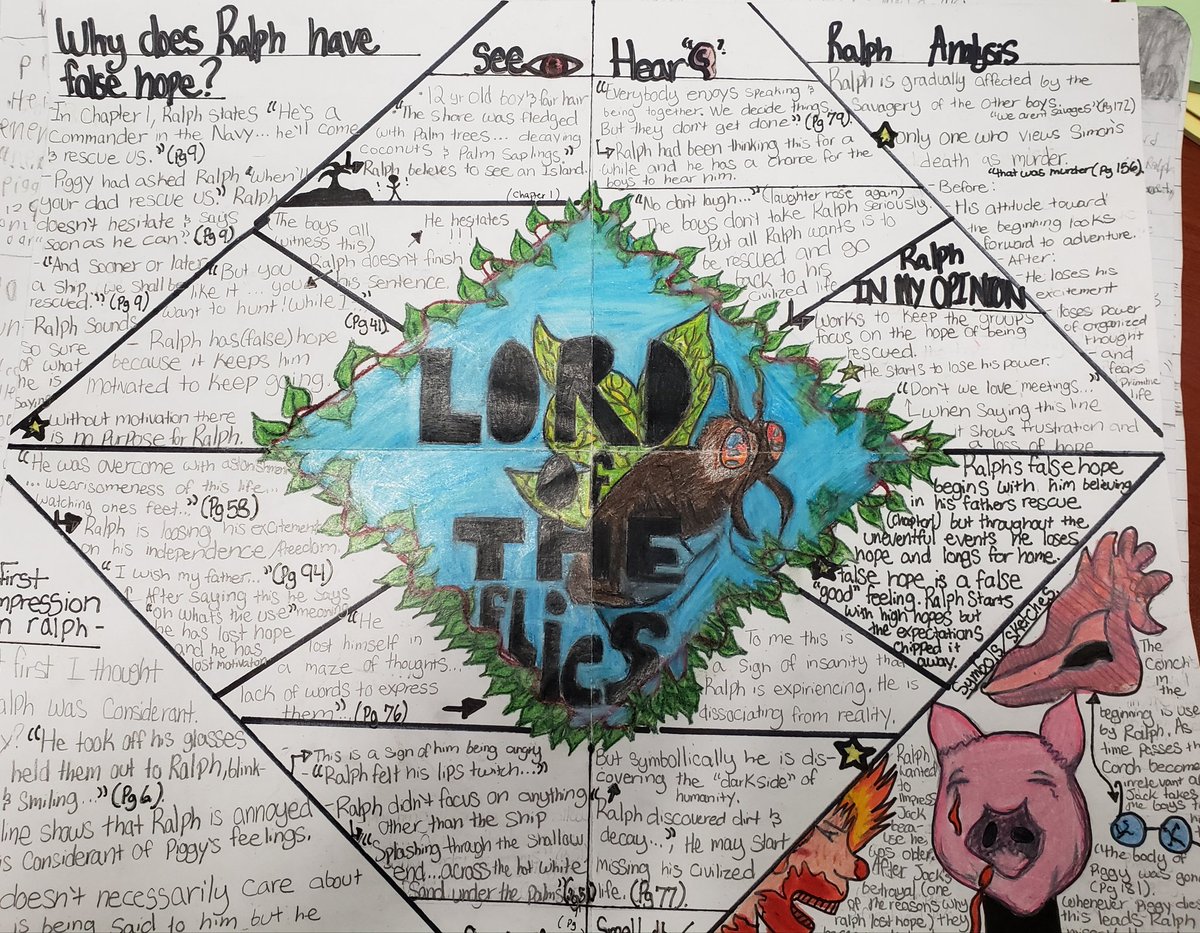 Why does Ralph have
false hope?
In Chapter 1, Ralph states "He's a
Commander in the Navy... he'll come
& rescue us." (Pg 9)
- Piggy had asked Ralph "when'll
your dad rescue us." Ralph
doesn't hesitate & says
"soon as he can". (Pg 9)
"And sooner or later
a ship, we shall be
rescued." (Pg 9)
- Ralph sounds
so sure
of what
he is
saying
- Ralph has (false) hope
because it keeps him
motivated to keep going.
without motivation there
is no purpose for Ralph.
see
"12 yr old boy & fair hair
"The shore was fledged
with Palm trees... decaying
coconuts & Palm Saplings."
Ralph believes to see an Island.
(Chapter 1)
The boys all
witness this)
He hesitates
!!!
"But you
like it... you
want to hunt! While I"
(Pg 41)
Ralph doesn't finish
his sentence.
Hear
"Everybody enjoys speaking &
being together. We decide things.
But they don't get done." (Pg 79).
Ralph had been thinking this for a
while and he has a chance for the
boys to hear him.
"No don't laugh..." (laughter rose again)
The boys don't take Ralph seriously
But all Ralph wants is to
be rescued and go
back to his
civilized life
Ralph Analysis
Ralph is gradually affected by the
Savagery of the other boys.
"we aren't savages" (Pg 172)
only one who views Simon's
death as murder.
"that was murder (Pg 156).
- Before:
- His attitude toward
the beginning looks
forward to adventure.
- After:
- He loses his
excitement
- loses power
of organized
thought
- and
fears
Primitive
life
Ralph
IN MY OPINION
works to keep the groups
focus on the hope of being
rescued.
He starts to lose his power.
"Don't we love meetings..."
when saying this line
it shows frustration and
a loss of hope
"He was overcome with astonishment
... wearisomeness of this life...
watching ones feet.." (Pg 58)
Ralph is loosing his excitement
on his independence/freedom.
"I wish my father..." (Pg 94)
After saying this he says
"on what's the use" meaning
he has lost hope
and he has
lost motivation
"He
lost himself in
a maze of thoughts...
lack of words to express
them". (Pg 76)
LORD
OF
THE
FLIES
To me this is
a sign of insanity that
Ralph is expiriencing. He is
dissociating from reality.
Ralph's false hope
begins with him believing
in his fathers rescue
(Chapter 1) but throughout the
uneventful events he loses
hope and longs for home.
"false hope is a false
"good" feeling. Ralph starts
with high hopes but
the expectations
chipped it
away.
First
impression
on ralph -
first I thought
Ralph was Considerant.
"He took off his glasses
held them out to Ralph, blink-
& smiling..." (Pg 6).
line shows that Ralph is annoyed
is considerant of Piggy's feelings.
doesn't necessarily care about
is being said to him but he
- This is a sign of him being angry
- "Ralph felt his lips twitch..."
- Ralph didn't focus on anything
other than the ship
"Splashing through the shallow
end... across the hot white
sand under the palms"
But symbollically he is dis-
covering the "darkside" of
humanity.
"Ralph discovered dirt &
decay...", He may start
missing his civilized
life. (Pg 77)
Symbols/sketches
The
Conch
in the
beginning is use
by Ralph. As
time passes th
Conch become
irrelevant a
Jack takes
the boys
"the body of
Piggy was gon
(Pg 181)
(whenever Piggy dies
this leads Ralph
Ralph
wanted
to
impress
Jack
beca-
use he
was older.
After Jacks
betrayal (one
of the reasons why
ralph lost hope) they